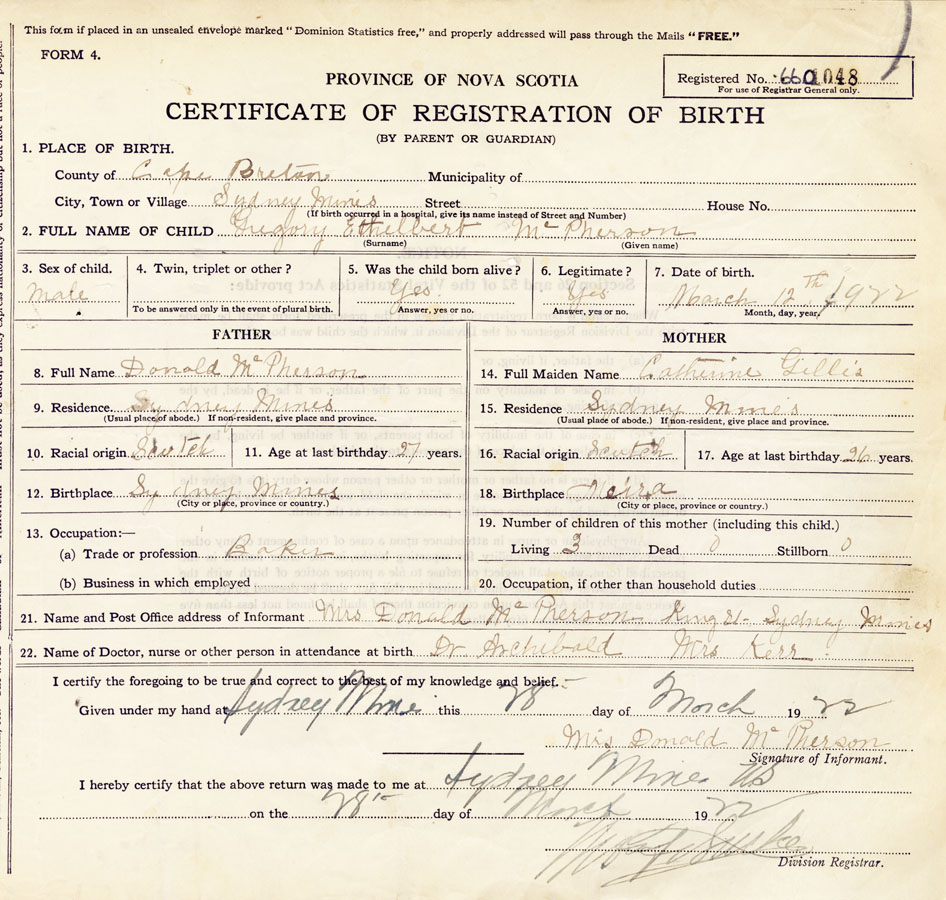 This form if placed in an unsealed envelope marked "Dominion Statistics free," and properly addressed will pass through the Mails "FREE."
FORM 4.
PROVINCE OF NOVA SCOTIA
Registered No. 660 1048
For use of Registrar General only.
CERTIFICATE OF REGISTRATION OF BIRTH
(BY PARENT OR GUARDIAN)
1. PLACE OF BIRTH.
County of Cape Breton Municipality of
City, Town or Village Sydney Mines Street House No.
(If birth occurred in a hospital, give its name instead of Street and Number)
2. FULL NAME OF CHILD Gregory Ethelbert Mc Pherson
(Surname) (Given name)
3. Sex of child. 4. Twin, triplet or other? 5. Was the child born alive? 6. Legitimate? 7. Date of birth.
Male Yes Yes March 12th, 1922
To be answered only in the event of plural birth. Answer, yes or no. Answer, yes or no. Month, day, year,
FATHER MOTHER
8. Full Name Donald Mc Pherson 14. Full Maiden Name Catherine Gillis
9. Residence. Sydney Mines 15. Residence Sydney Mines
(Usual place of abode.) If non-resident, give place and province. (Usual place of abode.) If non-resident, give place and province.
10. Racial origin Scotch 11. Age at last birthday 27 years. 16. Racial origin Scotch 17. Age at last birthday 26 years.
12. Birthplace Sydney Mines 18. Birthplace
(City or place, province or country.) (City or place, province or country.)
13. Occupation:— 19. Number of children of this mother (including this child.)
(a) Trade or profession Baker Living 3 Dead 0 Stillborn 0
(b) Business in which employed 20. Occupation, if other than household duties
21. Name and Post Office address of Informant Mrs Donald Mc Pherson King St- Sydney Mines
22. Name of Doctor, nurse or other person in attendance at birth Dr Archibald Mrs Kerr
I certify the foregoing to be true and correct to the best of my knowledge and belief.
Given under my hand at Sydney Mines this 28 day of March 1922
Mrs Donald Mc Pherson
Signature of Informant.
I hereby certify that the above return was made to me at Sydney Mines
on the 28 day of March 1922
Division Registrar.